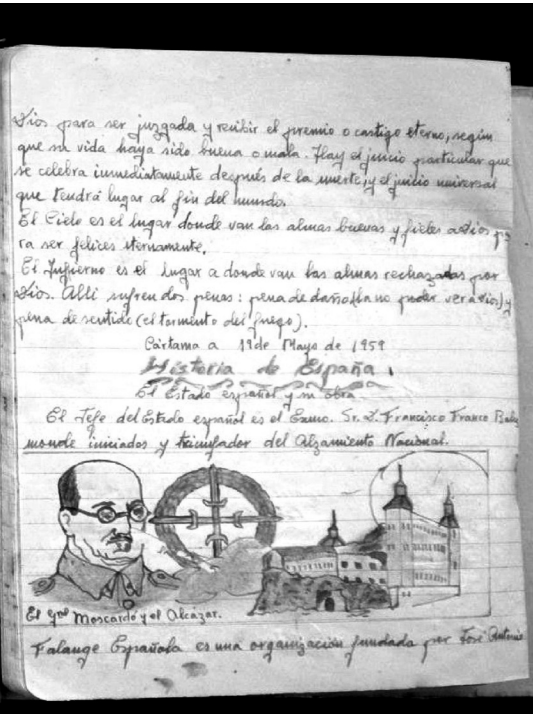 Dios para ser juzgada y recibir el premio o castigo eterno, según
que su vida haya sido buena o mala. Hay el juicio particular que
se celebra inmediatamente después de la muerte, y el juicio universal
que tendrá lugar al fin del mundo.
El Cielo es el lugar donde van las almas buenas y fieles a Dios pa
ra ser felices eternamente.
El Infierno es el lugar a donde van las almas rechazadas por
Dios. Allí sufren dos penas: pena de daño (la no poder ver a Dios) y
pena de sentido (el tormento del fuego).
Cártama a 19 de Mayo de 1959
Historia de España.
El Estado español y su obra
El Jefe del Estado español es el Excmo. Sr. D. Francisco Franco Baha
monde iniciados y triunfador del Alzamiento Nacional.
El gral Moscardó y el Alcázar.
Falange Española es una organización fundada por José Antonio